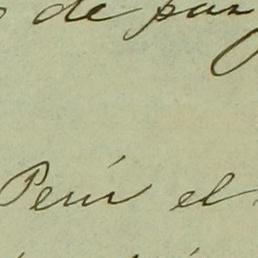 de paz
Perú el